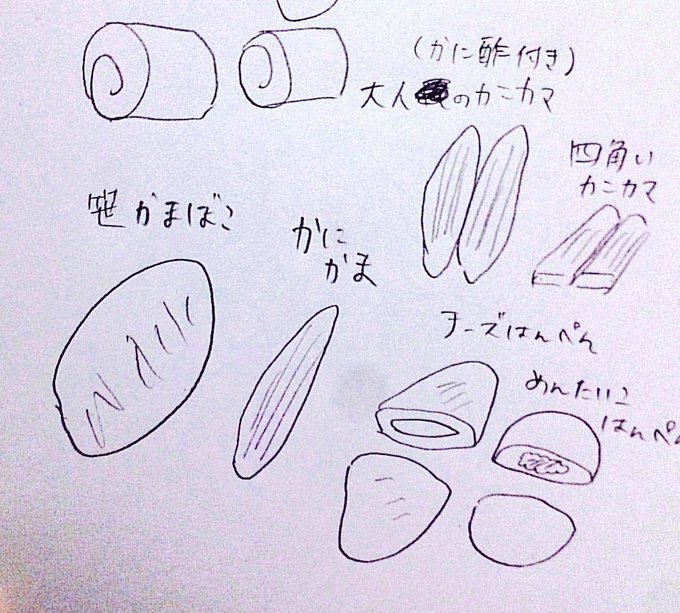 (かに酢付き)
大人のカニカマ
四角い
カニカマ
笹かまぼこ
かに
かま
チーズはんぺん
めんたいこ
はんぺん